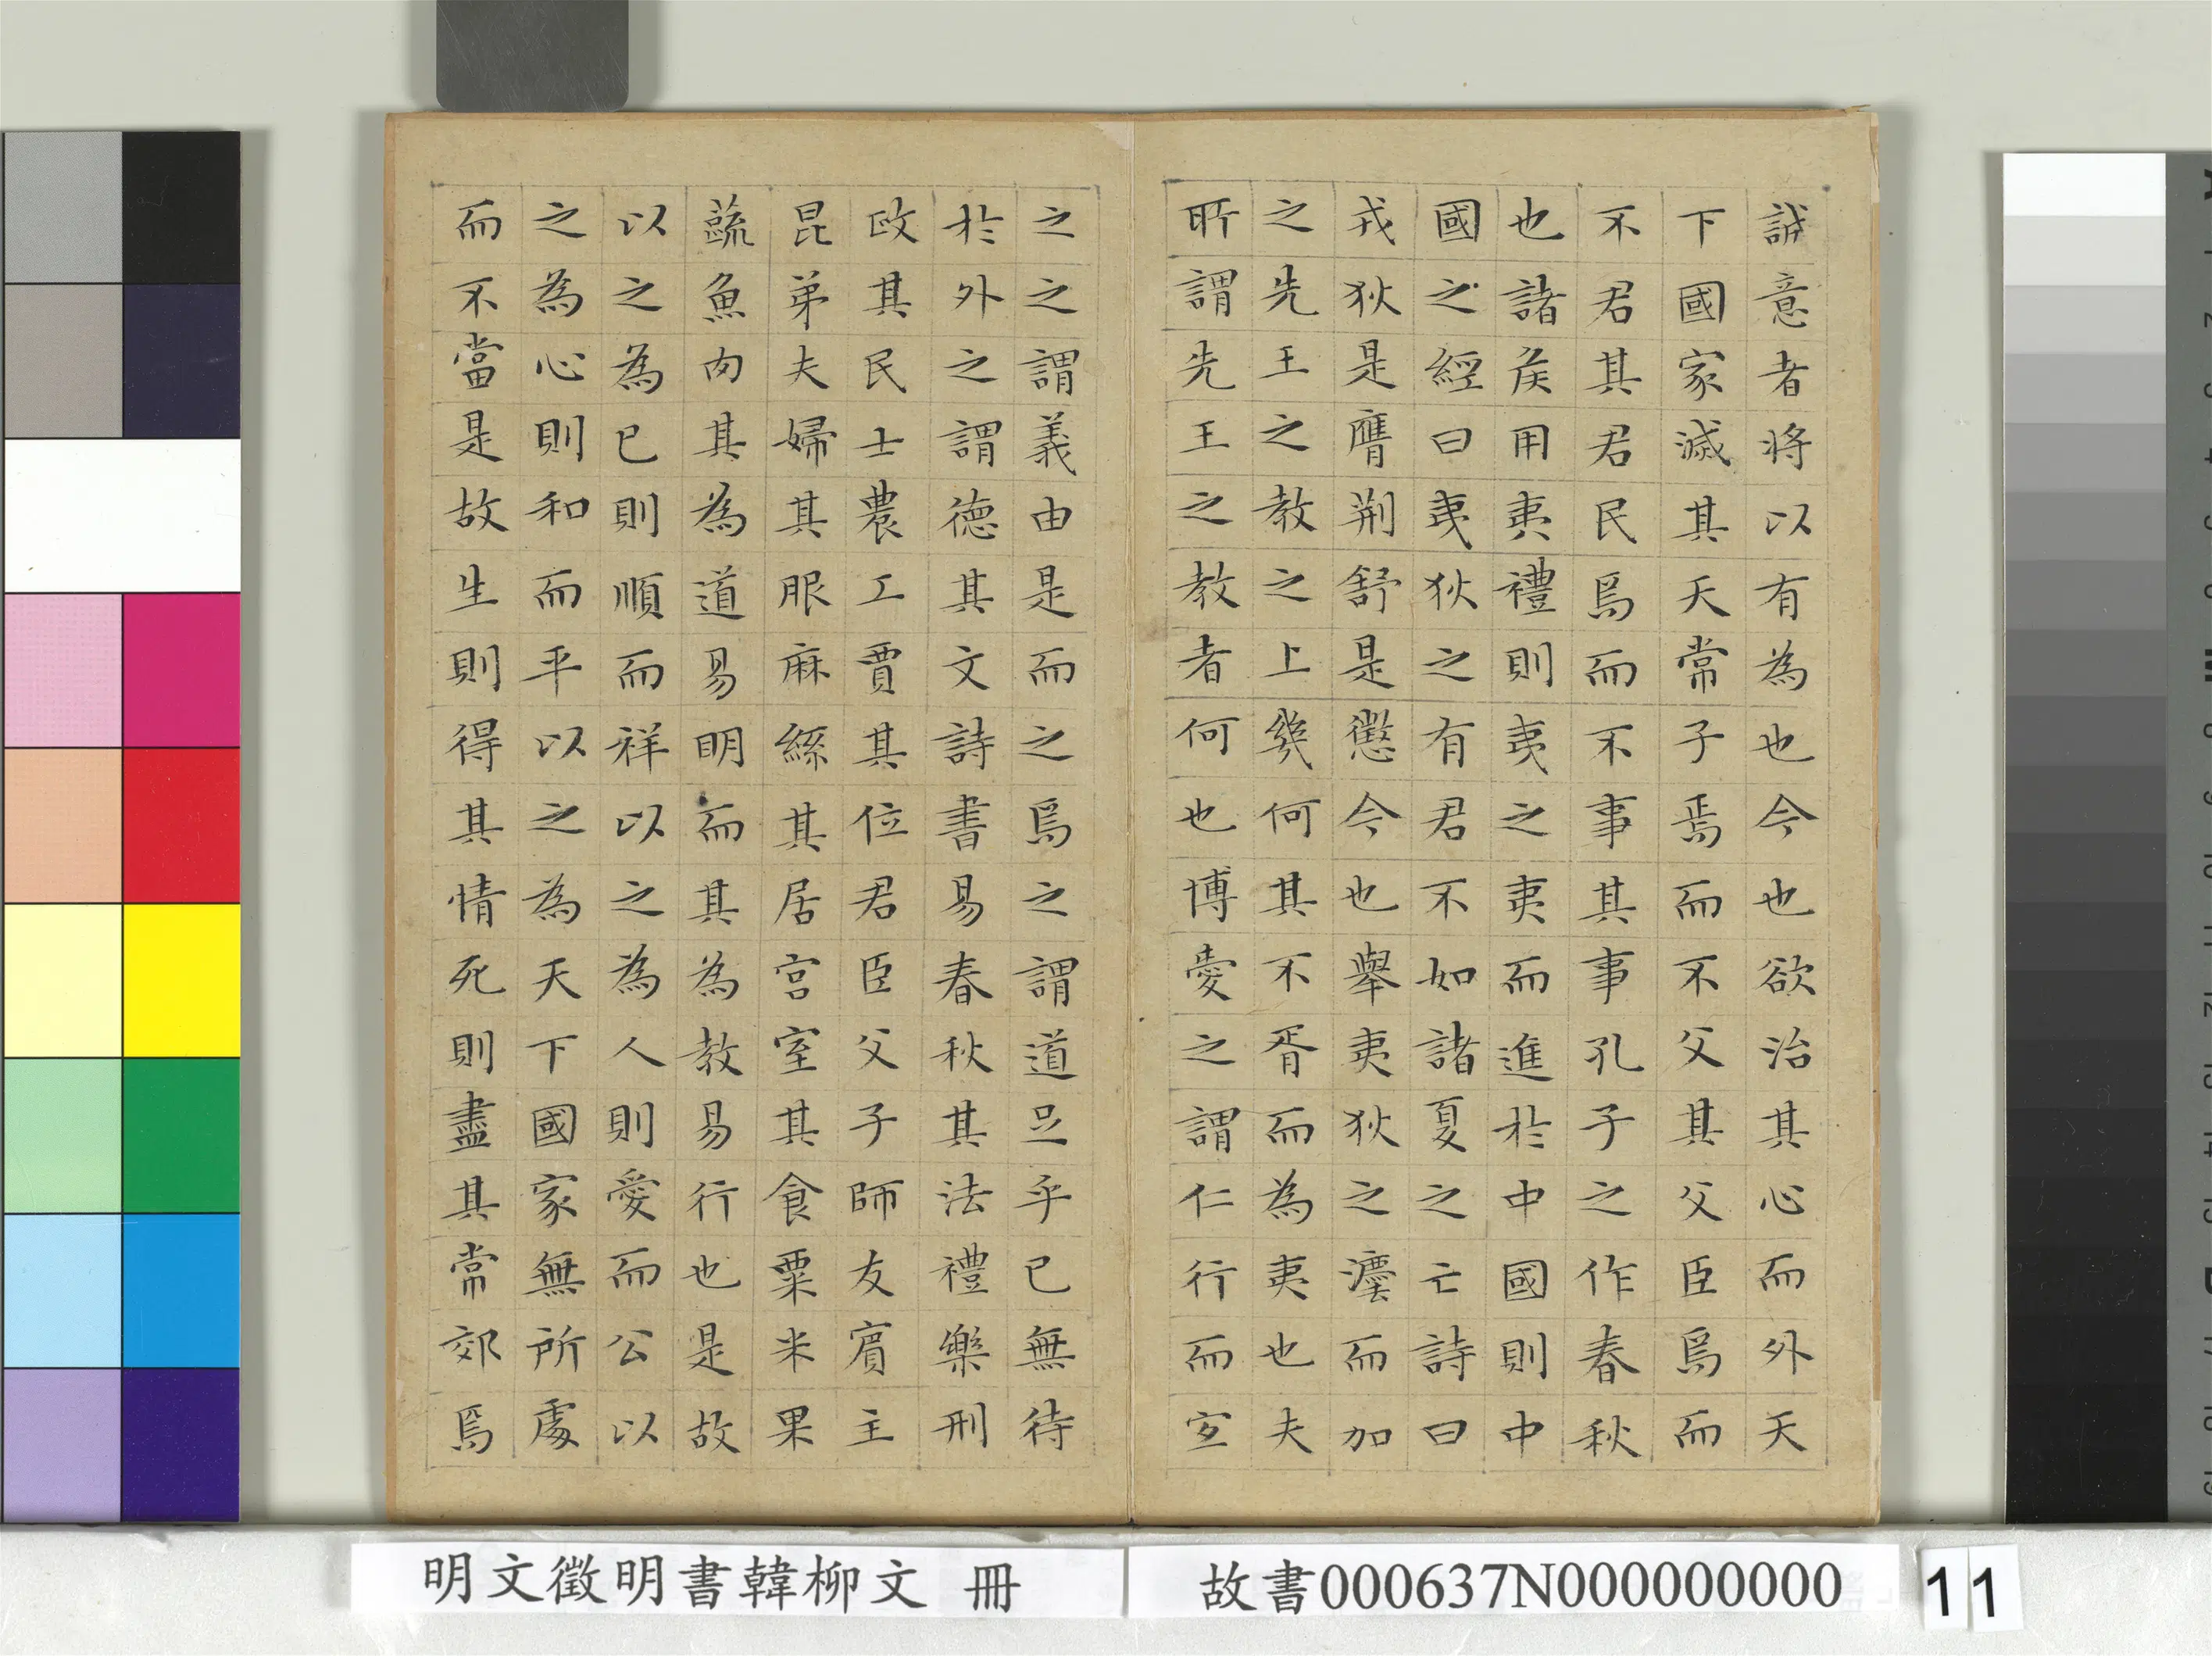 誠意者將以有為也今也欲治其心而外天
下國家滅其天常子焉而不父其父臣焉而
不君其君民焉而不事其事孔子之作春秋
也諸矦用夷禮則夷之夷而進於中國則中
國之經曰夷狄之有君不如諸夏之亡詩曰
戎狄是膺荆舒是懲今也舉夷狄之灋而加
之先王之教之上幾何其不胥而為夷也夫
所謂先王之教者何也博愛之謂仁行而宜
之之謂義由是而之焉之謂道足乎已無待
於外之謂德其文詩書易春秋其法禮樂刑
政其民士農工賈其位君臣父子師友賓主
昆弟夫婦其服麻絲其居宮室其食粟米果
蔬魚肉其為道易明而其為教易行也是故
以之為已則順而祥以之為人則愛而公以
之為心則和而平以之為天下國家無所處
而不當是故生則得其情死則盡其常郊焉
明文徵明書韓柳文 冊
故書000637N000000000
11